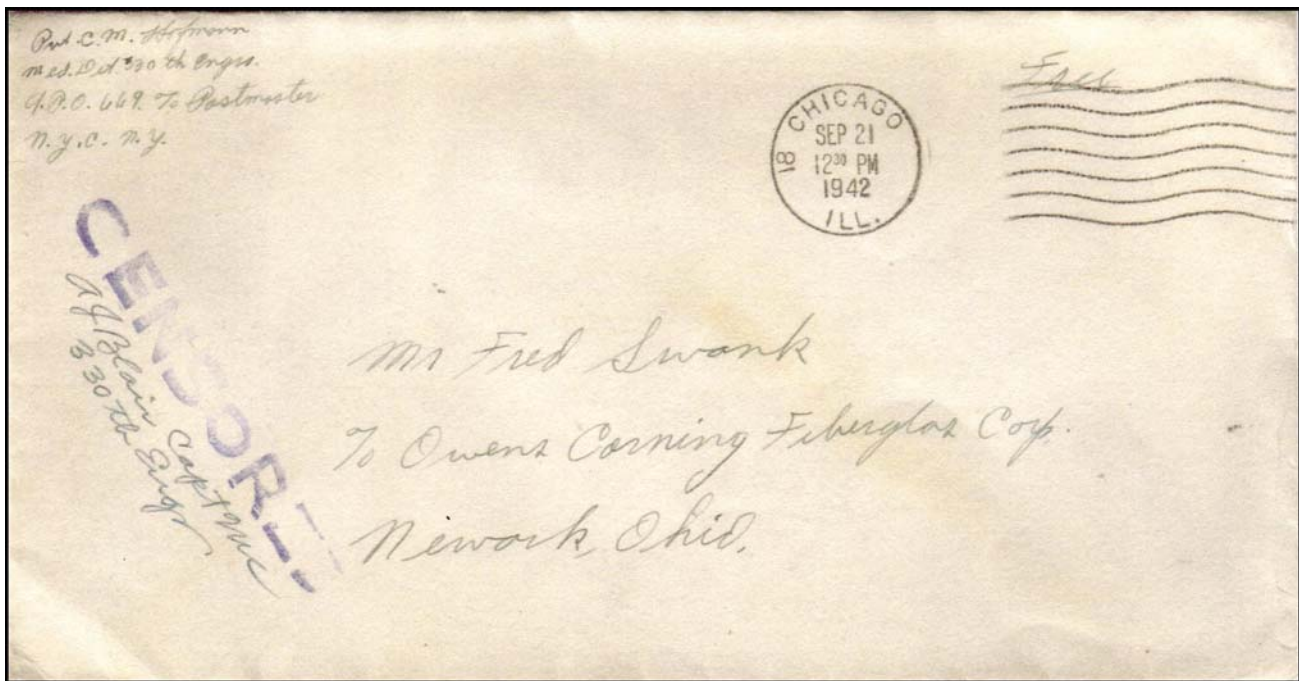 Pvt. C. M. Hofmann
Med. Det. 330th Engrs.
A.P.O. 669. % Postmaster
N.Y.C. N.Y.
CHICAGO
18
SEP 21
12³⁰ PM
1942
ILL.
Free
CENSOR
A J Blair Capt MC
330th Engr
Mr Fred Swank
% Owens Corning Fiberglas Corp.
Newark, Ohio.